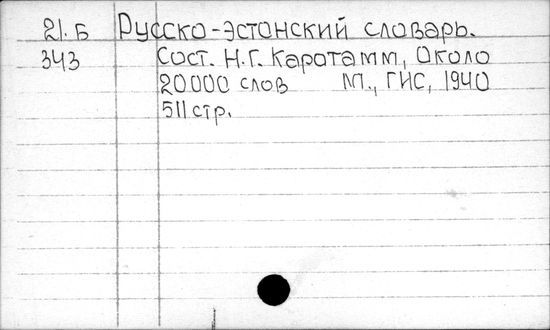 21. Б Русско-эстонский словарь.
343 Сост. Н.Г. Каротамм, Около
20000 слов М., ГИС, 1940
511 стр.